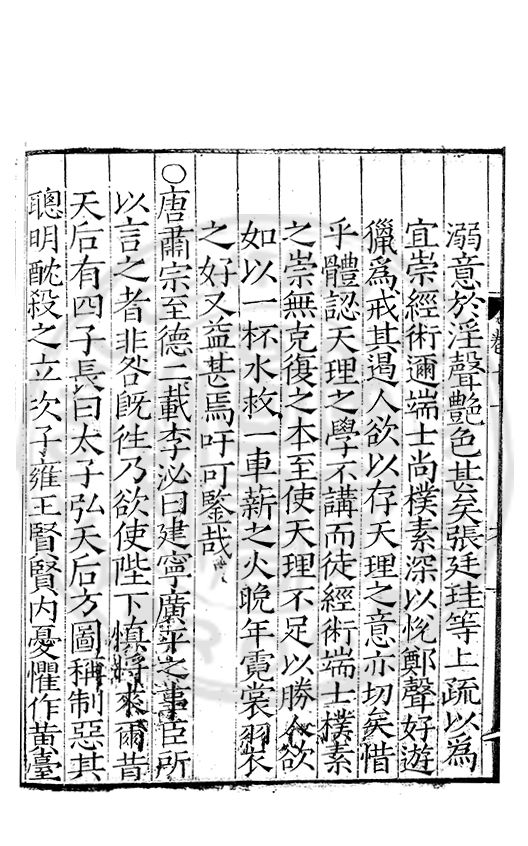 溺意於淫聲艶色甚矣張廷珪等上疏以為
宜崇經術邇端士尚樸素深以悅鄭聲好遊
獵為戒其遏人欲以存天理之意亦切矣惜
乎體認天理之學不講而徒經術端士樸素
之崇無克復之本至使天理不足以勝人欲
如以一杯水救一車薪之火晚年霓裳羽衣
之好又益甚焉吁可鑒哉
○唐肅宗至德二載李泌曰建寧廣平之事臣所
以言之者非咎既徃乃欲使陛下慎將來爾昔
天后有四子長曰太子弘天后方圖稱制惡其
聰明酖殺之立次子雍王賢賢内憂懼作黄臺